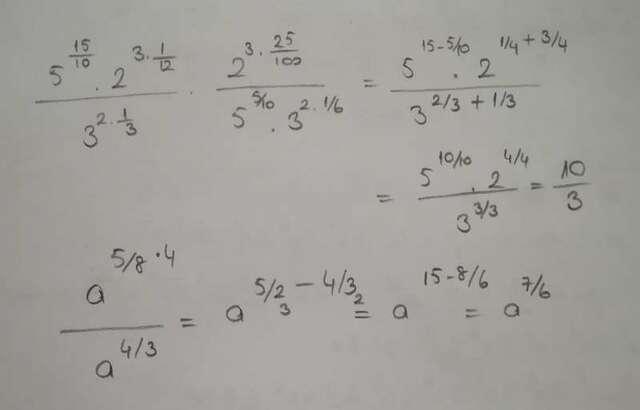 5^{15/10} · 2^{3·1/12} / 3^{2·1/3} · 2^{3·25/100} / 5^{5/10} · 3^{2·1/6} = 5^{15-5/10} · 2^{1/4+3/4} / 3^{2/3+1/3}
= 5^{10/10} · 2^{4/4} / 3^{3/3} = 10/3
a^{5/8·4} / a^{4/3} = a^{5/2 - 4/3} = a^{15-8/6} = a^{7/6}
3 2